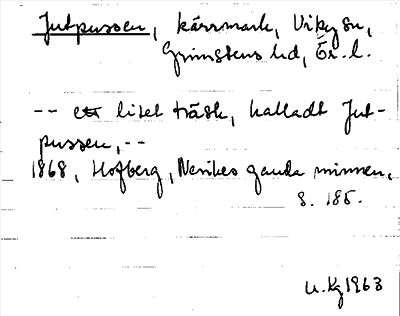 Jutpussen, kärrmark, Viby sn,
Grimstens hd, Ör. l.
-- ett litet träsk, kalladt Jut-
pussen, --
1868, Hofberg, Nerikes gamla minnen,
s. 185.
U. Kg 1963